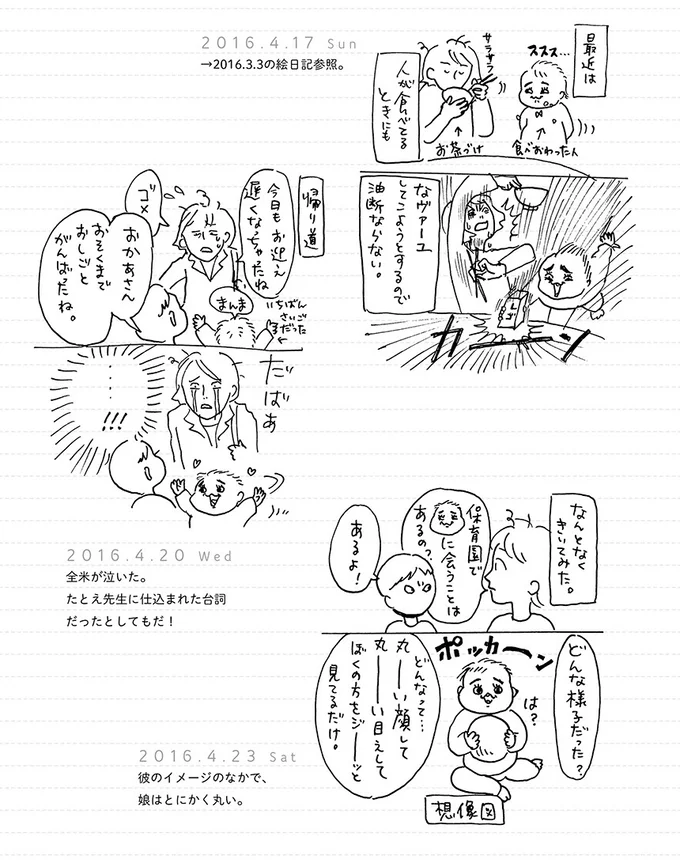 2016.4.17 Sun
→2016.3.3の絵日記参照。
最近は
ススス…
サラサラ
人が食べてる
ときにも
お茶づけ
食べおわったん
なヴァーユ
してこようとするので
油断ならない。
レゴ
ガシーン
帰り道
今日もお迎え
遅くなっちゃったね
ゴメ
まんま
いちばん
さいご
だった
おかあさん
おそくまで
おしごと
がんばったね。
……
!!!
だばあ
2016.4.20 Wed
全米が泣いた。
たとえ先生に仕込まれた台詞
だったとしてもだ！
なんとなく
きいてみた。
保育園で
に会うことは
あるの？
あるよ！
どんな様子だった？
ポッカーン
は？
どんなって…
丸ーい顔して
丸ーーい目えして
ぼくの方をジーーッと
見てるだけ。
想像図
2016.4.23 Sat
彼のイメージのなかで、
娘はとにかく丸い。